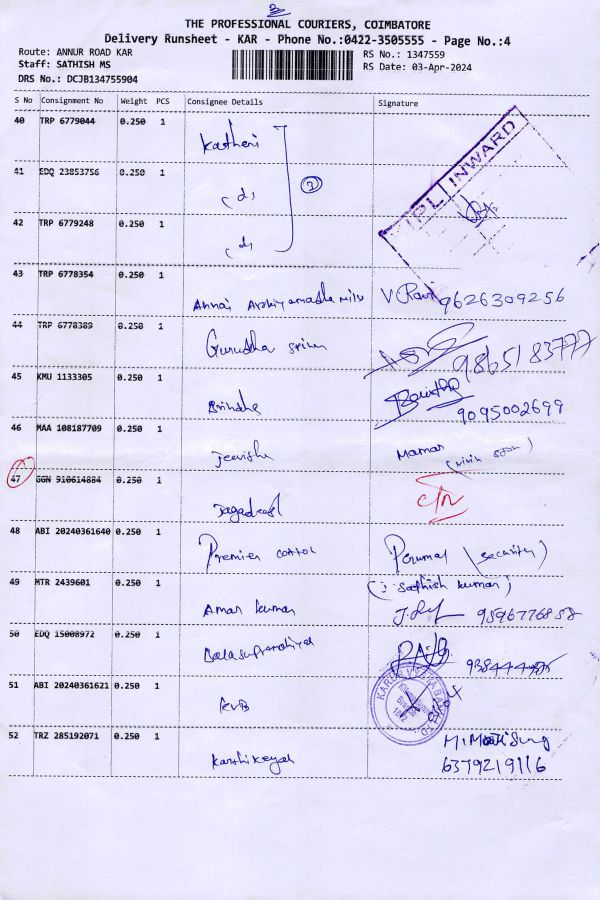 THE PROFESSIONAL COURIERS, COIMBATORE
Delivery Runsheet - KAR - Phone No.:0422-3505555 - Page No.:4
Route: ANNUR ROAD KAR
RS No.: 1347559
Staff: SATHISH MS
RS Date: 03-Apr-2024
DRS No.: DCJB134755904
S No Consignment No Weight PCS Consignee Details Signature
40 TRP 6779044 0.250 1 Katheri
TPL INWARD
41 EDQ 23853756 0.250 1 (d)
3
42 TRP 6779248 0.250 1 (d)
43 TRP 6778354 0.250 1 Annai V Ravi 9626309256
44 TRP 6778389 0.250 1 Gurudha 9865183777
45 KMU 1133305 0.250 1 Brindha 9095002699
46 MAA 108187709 0.250 1 Jeevisha
47 GGN 910614884 0.250 1
48 ABI 20240361640 0.250 1 Premier cottol Perumal (security)
49 MTR 2439601 0.250 1 Amar kumar (J. Sathish kumar)
9596776858
50 EDQ 15008972 0.250 1 Balasupramaniya
51 ABI 20240361621 0.250 1 KVB
KARUR VYSYA BANK LTD
52 TRZ 285192071 0.250 1 Karthikeyal
6379219116